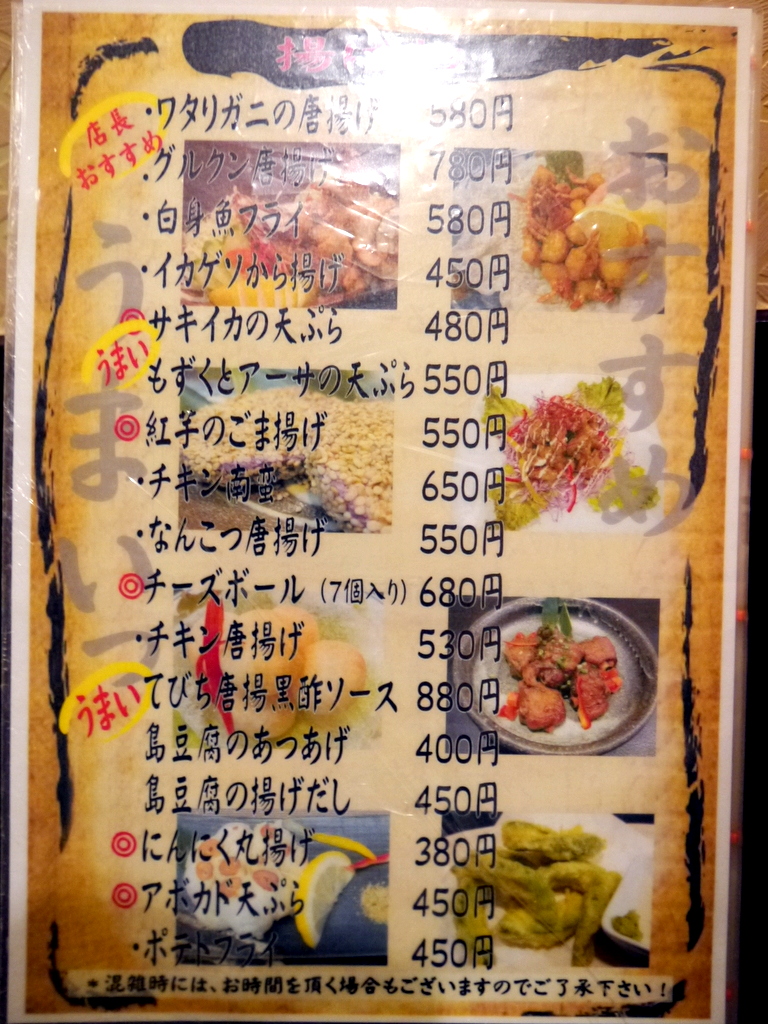 揚げ
店長
おすすめ
・ワタリガニの唐揚げ 580円
・グルクン唐揚げ 780円
・白身魚フライ 580円
・イカゲソから揚げ 450円
◎サキイカの天ぷら 480円
うまい
もずくとアーサの天ぷら 550円
◎紅芋のごま揚げ 550円
・チキン南蛮 650円
・なんこつ唐揚げ 550円
◎チーズボール（7個入り） 680円
・チキン唐揚げ 530円
うまい
てびち唐揚黒酢ソース 880円
島豆腐のあつあげ 400円
島豆腐の揚げだし 450円
◎にんにく丸揚げ 380円
◎アボカド天ぷら 450円
・ポテトフライ 450円
＊混雑時には、お時間を頂く場合もございますのでご了承下さい！
おすすめ
うまいっ